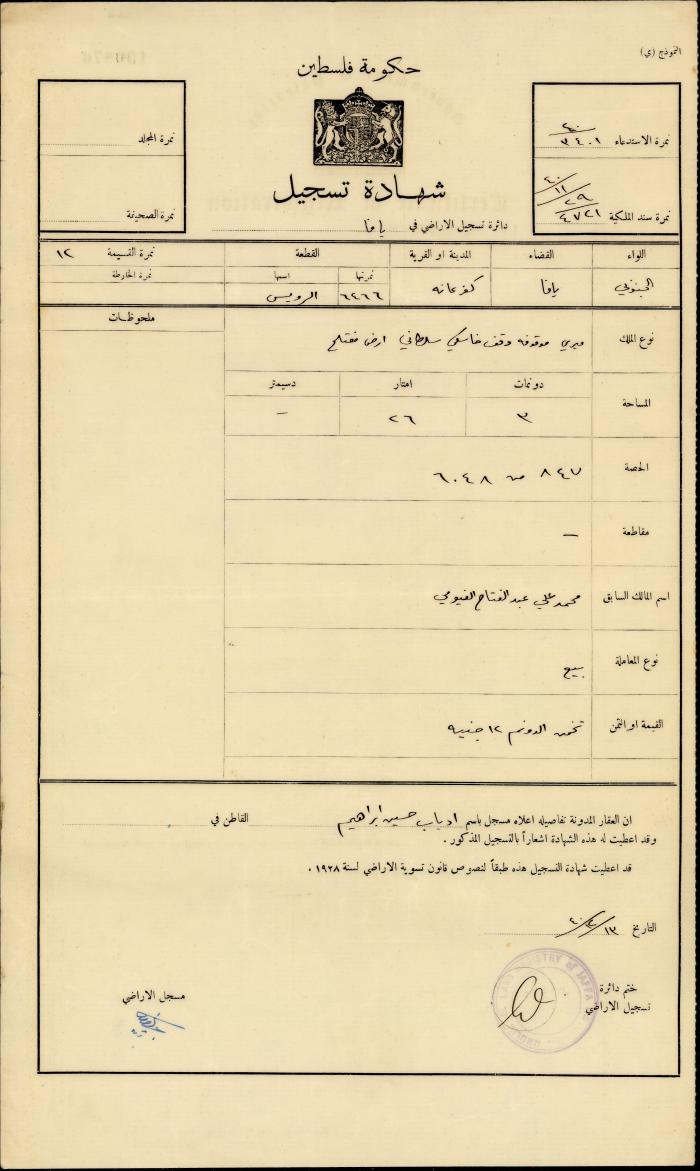 النموذج (ي)
حكومة فلسطين
شهادة تسجيل
دائرة تسجيل الاراضي في يافا
نمرة الاستدعاء ٣٤٠١/٤٠
نمرة سند الملكية ٤٧٢١
٤٠/١١/٢٩
نمرة المجلد
نمرة الصحيفة
اللواء القضاء المدينة او القرية القطعة نمرة القسيمة ١٢
نمرتها اسمها نمرة الخارطة
الجنوبي يافا كفرعانه ٦٢٦٦ الرويس
ملحوظات
نوع الملك ميري موقوفه وقف خاسكي سلطاني ارض مفتلح
دونمات امتار دسيمتر
المساحة ٣ ٢٦ –
الحصة ٨٤٧ من ٦٠٤٨
مقاطعة –
اسم المالك السابق محمد علي عبد الفتاح الفيومي
نوع المعاملة بيع
القيمة او الثمن تخمن الدونم ١٢ جنيه
ان العقار المدونة تفاصيله اعلاه مسجل باسم ادياب حسين ابراهيم القاطن في
وقد اعطيت له هذه الشهادة اشعاراً بالتسجيل المذكور .
قد اعطيت شهادة التسجيل هذه طبقاً لنصوص قانون تسوية الاراضي لسنة ١٩٢٨ .
التاريخ ١٣/١٢/٤٠
ختم دائرة
تسجيل الاراضي
مسجل الاراضي
LAND REGISTRY of JAFFA